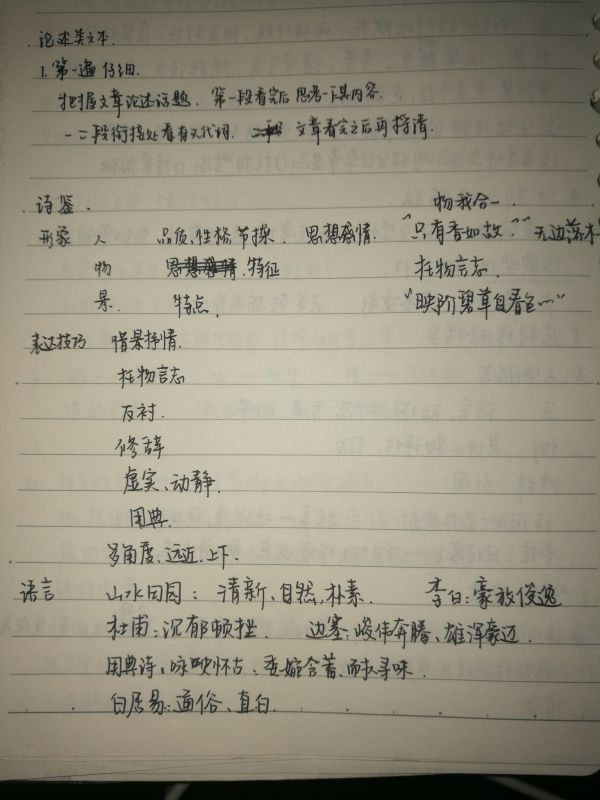 论述类文本.
1.第一遍 仔细.
把握文章论述话题. 第一段看完后思考一下其内容.
一二段衔接处看有无代词. 文章看完之后再捋清.
诗鉴. 物我合一.
形象 人 品质、性格、节操. 思想感情. “只有香如故”“无边落木
物 特征 托物言志.
景. 特点. “映阶碧草自春色…”
表达技巧 借景抒情.
托物言志
反衬.
修辞
虚实、动静.
用典.
多角度、远近、上下.
语言 山水田园:清新、自然、朴素. 李白:豪放俊逸
杜甫:沉郁顿挫. 边塞:峻伟奔腾、雄浑豪迈.
用典诗、咏史怀古:委婉含蓄、耐人寻味.
白居易:通俗、直白.